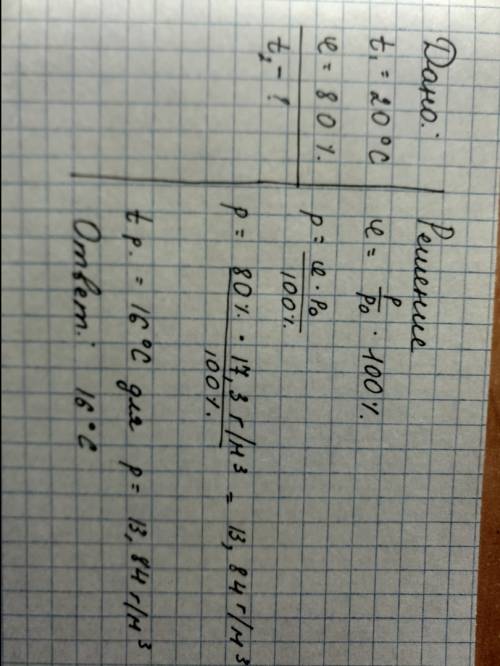 Дано:
t₁ = 20°C
φ = 80%
t₂ - ?
Решение
φ = p/p₀ · 100%
p = φ · p₀/100%
p = 80% · 17,3 г/м³/100% = 13,84 г/м³
t р. = 16°C для p = 13,84 г/м³
Ответ: 16°C